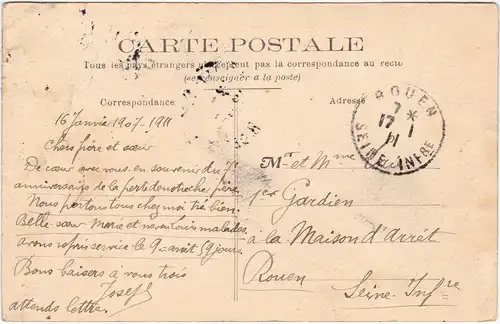 CARTE POSTALE
Tous les pays étrangers n'acceptent pas la correspondance au recto
(se renseigner à la poste)
Correspondance
Adresse
16 Janvier 1907-1911
Chers frère et sœur
De cœur avec vous, en souvenir du
anniversaire de la perte de notre cher père
Nous portons tous chez moi très bien.
Belle-sœur Marie et neveu toujours malades
avons repris service le 9. avait 9 jours.
Bons baisers à vous trois
Joseph
attends lettre.
ROUEN
7 *
17 - 1
11
SEINE-INFRE
Mr et Mme
1er Gardien
à la Maison d'Arrêt
Rouen
Seine-Infre